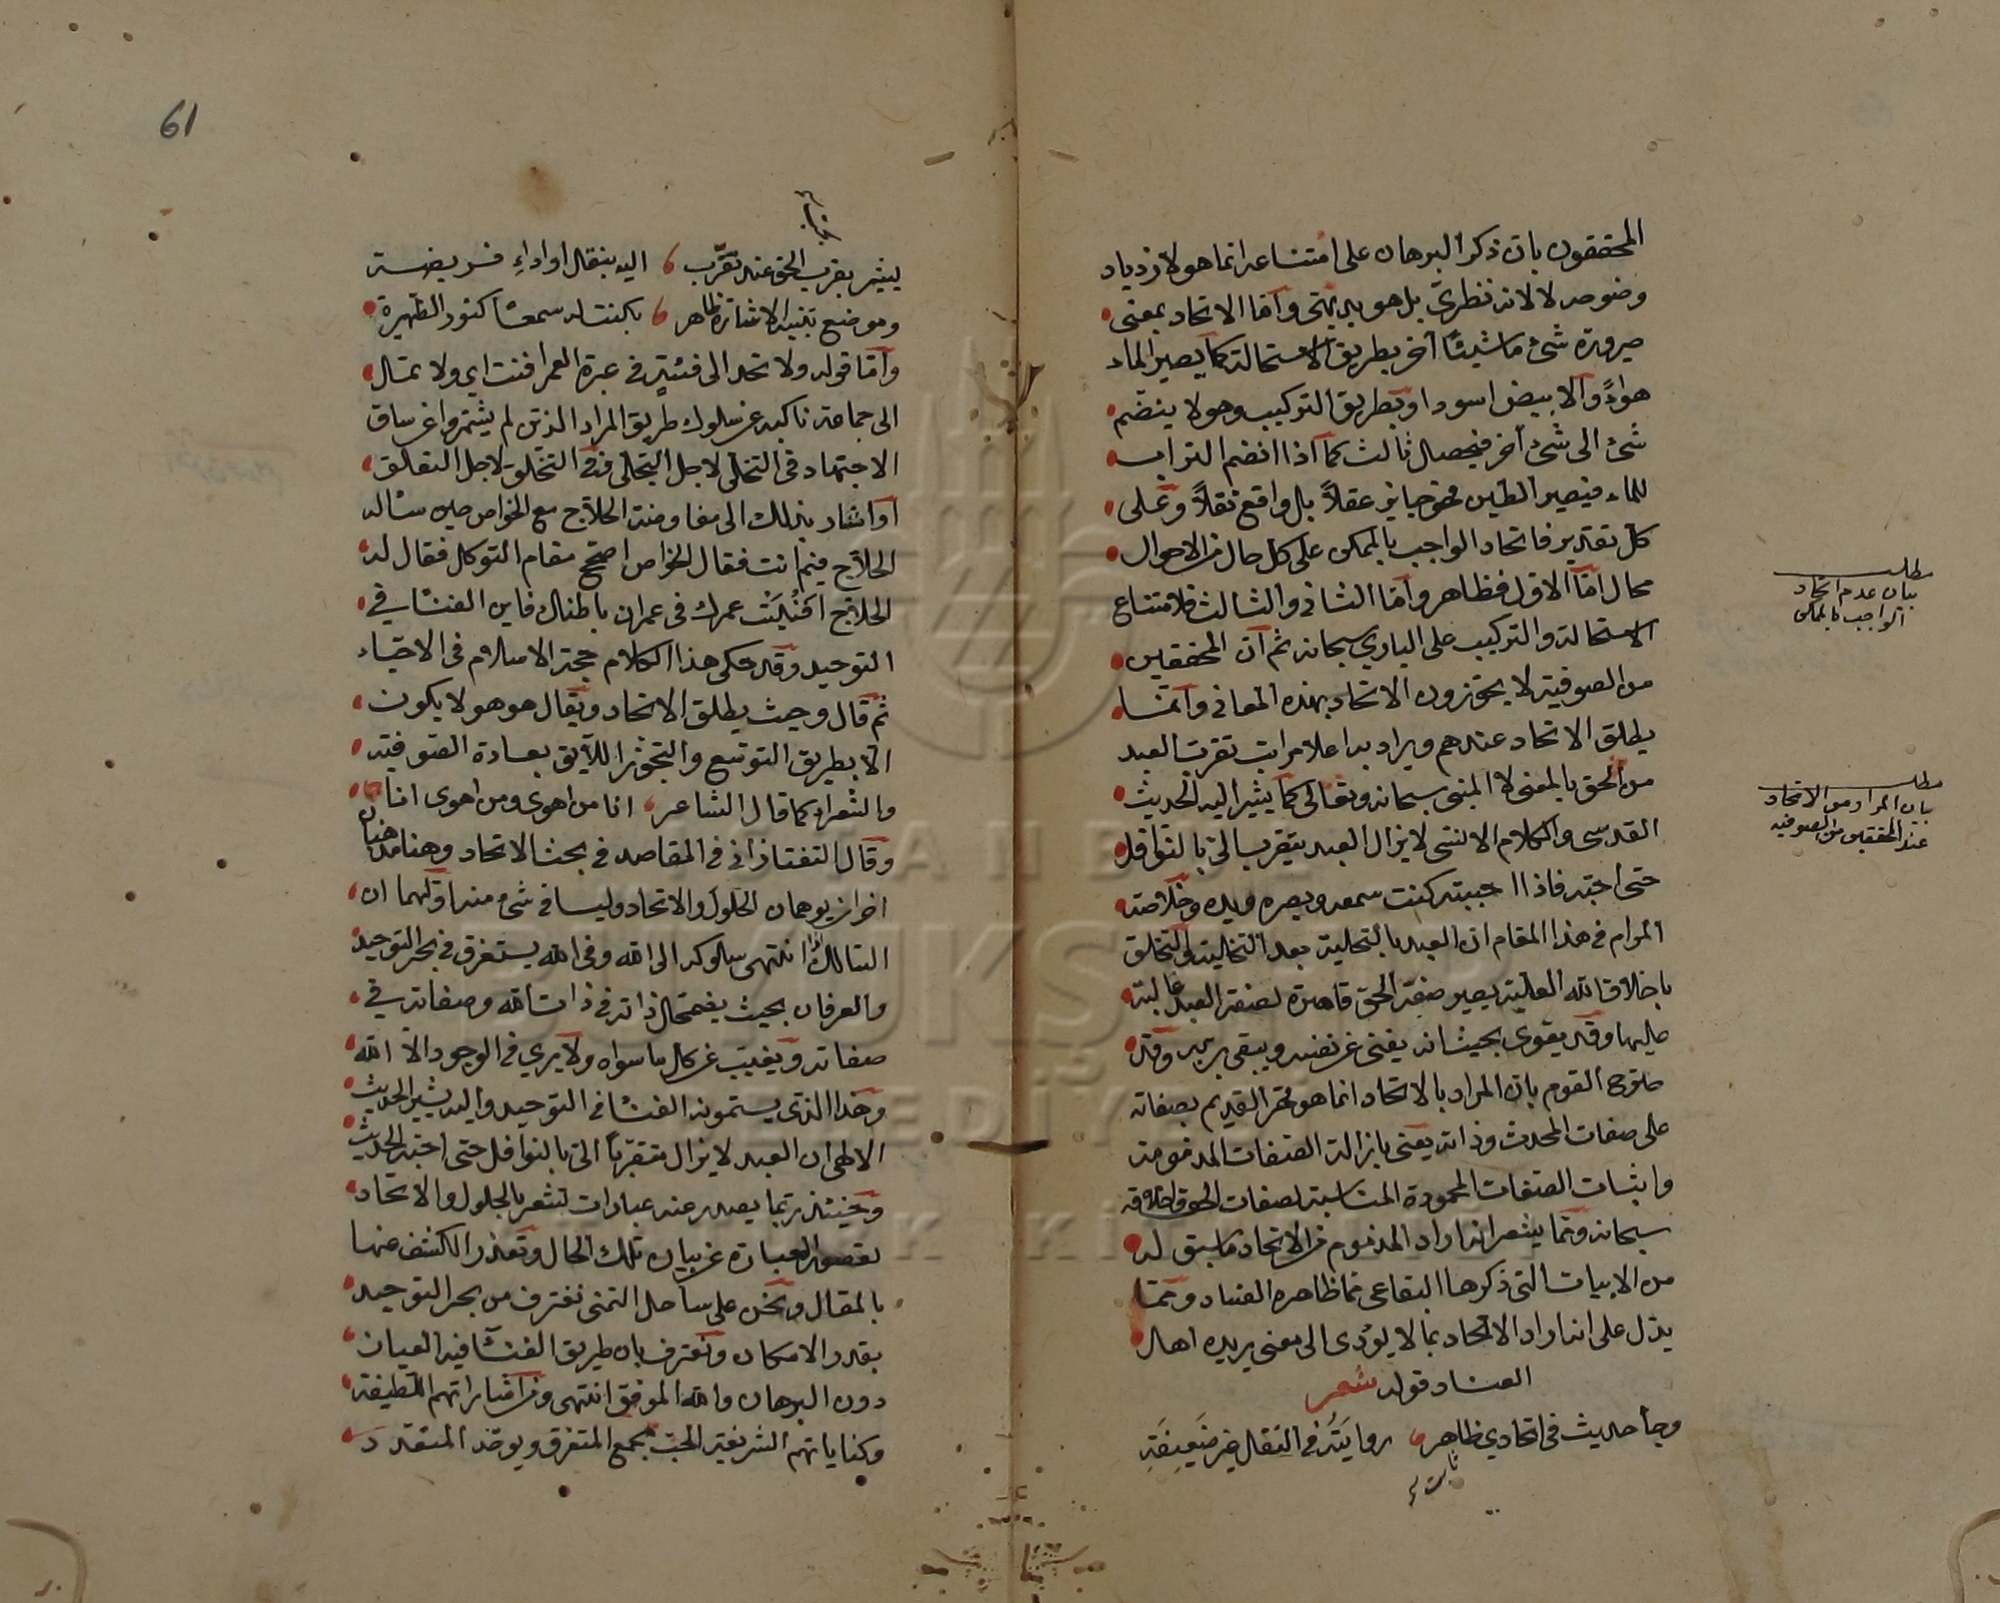 المحققون بان ذكر البرهان على امتناعه انما هو لازدياد
وضوحه لا لانه نظري بل هو بديهتى واما الاتحاد بمعنى
صيرورة شئ ما شيئا آخر بطريق الاستحالة كما يصير الماء
هواءً والابيض اسود او بطريق التركيب وهو لا ينضم
شئ الى شئ آخر فيحصل ثالث كما اذا انضم التراب
للماء فيصير الطين فهو جايز عقلاً بل واقع نقلاً وعلى
كل تقدير فاتحاد الواجب بالممكن على كل حال من الاحوال
محال اما الاول فظاهر واما الثانى والثالث فلامتناع
الاستحالة والتركيب على البارى سبحانه ثم ان المحققين
من الصوفية لا يجوزون الاتحاد بهذه المعانى وانما
يطلق الاتحاد عندهم ويراد به اعلا مراتب تقرب العبد
من الحق بالمعنى لا المبنى سبحانه وتعالى كما يشير اليه الحديث
القدسى والكلام الانسى لا يزال العبد يتقرب الىّ بالنوافل
حتى احبه فاذا احببته كنت سمعه وبصره ويده وخلاصة
المرام فى هذا المقام ان العبد بالتحلية بعد التخلية والتخلق
باخلاق الله العلية يصير صفة الحق قاهرة لصفة العبد غالبة
عليها وقد يقوى بحيث انه يفنى عن نفسه ويبقى بربه وقد
صرح القوم بان المراد بالاتحاد انما هو قهر القديم بصفاته
على صفات المحدث وذاته يعنى بازالة الصفات المذمومة
واثبات الصفات المحمودة المناسبة لصفات الحق واخلاقه
سبحانه ومما يشعر انه اراد المذموم من الاتحاد ما سبق له
من الابيات التى ذكرها البقاعى مما ظاهره الفساد ومما
يدل على انه اراد الاتحاد بما لا يؤدى الى معنى يريده اهل
العناد قوله شعر
وجأ حديث فى اتحادى ظاهر روايته فى النقل غير ضعيفة
ثابت
مطلب
بيان عدم اتحاد
الواجب بالممكن
مطلب
بيان المراد من الاتحاد
عند المحققين من الصوفيه
يشير بقرب الحق عند تقرّب اليه بنفل او اداءِ فريضة
وموضع تنبيه الاشارة ظاهر بكنت له سمعًا كنور الظهيرة
واما قوله ولا تحد الى فئتةٍ فى عبرة العمر افنت اى ولا تمل
الى جماعة ناكبه عن سلوك طريق المراد الذين لم يشمروا عن ساق
الاجتهاد فى التخلى لاجل التحلى فى التخلق لاجل التعلق
او اشار بذلك الى مفاوضة الحلاج مع الخواص حين سأله
الحلاج فيم انت فقال الخواص اصحح مقام التوكل فقال له
الحلاج افنيت عمرك فى عمران باطنك فاين الفنـأ فى
التوحيد وقد حكى هذا الكلام حجة الاسلام فى الاحيـاء
ثم قال وحيث يطلق الاتحاد ويقال هو هو لا يكون
الا بطريق التوسع والتجوّز اللايق بعادة الصوفية
والشعراء كما قال الشاعر انا من اهوى ومن اهوى انا
وقال التفتازانى فى المقاصد فى بحث الاتحاد وهنا مذهبان
اخران يوهمان الحلول والاتحاد وليسا فى شئ منه اولهما ان
السالك اذا انتهى سلوكه الى الله وفى الله يستغرق فى بحر التوحيد
والعرفان بحيث يضمحل ذاته فى ذات الله وصفاته فى
صفاته ويغيب عن كل ما سواه ولا يرى فى الوجود الا الله
وهذا الذى يسمونه الفنـأ فى التوحيد واليه يشير الحديث
الالهى ان العبد لا يزال متقربًا الىّ بالنوافل حتى احبه الحديث
وحينئذ ربما يصدر عنه عبارات تشعر بالحلول والاتحاد
لقصور العبارة عن بيان تلك الحال وتعذر الكشف عنها
بالمقال ونحن على ساحل التمنى نغترف من بحر التوحيد
بقدر الامكان ونعترف بان طريق الفنـأ فيه العيان
دون البرهان والله الموفق انتهى ومن اشاراتهم اللطيفة
وكناياتهم الشريفة الحب يجمع المتفرق ويوحد المتعدد